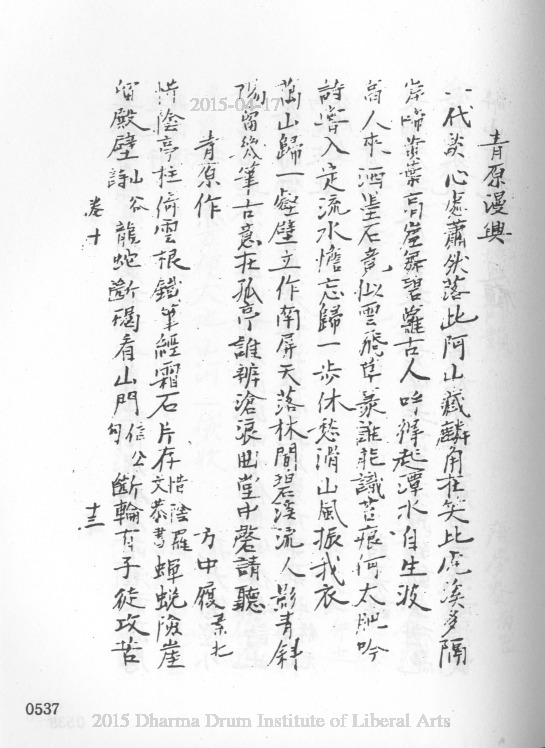 青原漫興
一代談心處蕭然落此阿山藏麟角在笑比虎溪多隔
岸啼黃葉高崖舞碧蘿古人呼得起潭水自生波
高人來洒墨石竟似雲飛草篆誰能識苔痕何太肥吟
詩嘗入定流水憺忘歸一步休愁滑山風振我衣
萬山歸一壑壁立作南屏天落林間碧溪流人影青斜
陽留幾筆古意在孤亭誰辨滄浪曲堂中磬請聽
青原作
方中履素北
惜陰亭柱倚雲根鐵筆經霜石片存惜陰羅文恭書蟬蛻險崖
留殿壁山谷詩龍蛇斷碣看山門信公句斲輪有子徒攻苦
卷十
十三
2015-04-17
0537
2015 Dharma Drum Institute of Liberal Arts